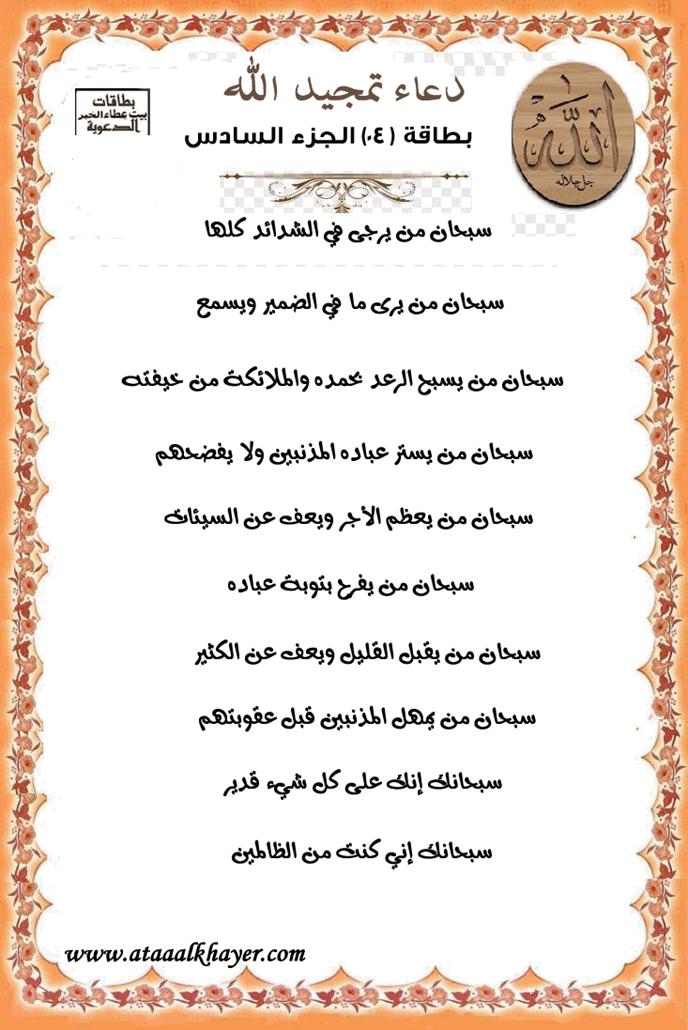 دعاء تمجيد الله
بطاقة (٠٤) الجزء السادس
بطاقات
بيت عطاء الخير
الدعوية
الله
جل جلاله
سبحان من يرجى في الشدائد كلها
سبحان من يرى ما في الضمير ويسمع
سبحان من يسبح الرعد بحمده والملائكة من خيفته
سبحان من يستر عباده المذنبين ولا يفضحهم
سبحان من يعظم الأجر ويعف عن السيئات
سبحان من يفرح بتوبة عباده
سبحان من يقبل القليل ويعف عن الكثير
سبحان من يمهل المذنبين قبل عقوبتهم
سبحانك إنك على كل شيء قدير
سبحانك إني كنت من الظالمين
www.ataaalkhayer.com